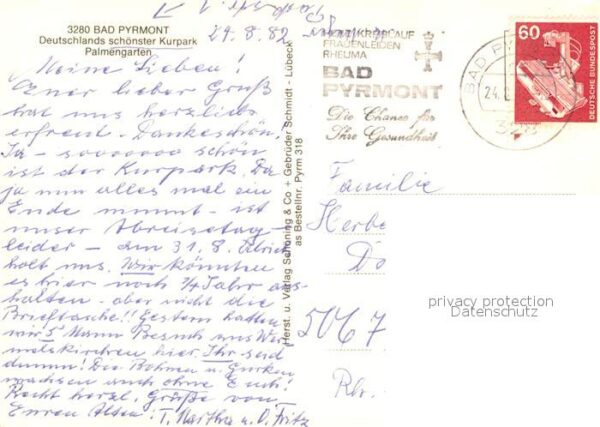 3280 BAD PYRMONT
Deutschlands schönster Kurpark
Palmengarten
24.8.82
Meine Lieben!
Euer lieber Gruß
hat uns herzlich
erfreut - Dankeschön.
Ja - sooooooo schön
ist der Kurpark. Da
ja nun alles mal ein
Ende nimmt - ist
unser Abreisetag -
leider - am 31.8. Ulrich
holt uns. Wir könnten
es hier noch 1/4 Jahr aus-
halten - aber nicht die
Brieftasche!! Gestern hatten
wir 5 Mann Besuch aus Wer-
melskirchen hier. Ihr seid
dumm! Die Bohnen u. Gurken
wachsen auch ohne Euch!
Recht herzl. Grüße von
Euren Alten: T. Martha u. O. Fritz
Herst. u. Verlag Schöning & Co + Gebrüder Schmidt - Lübeck
as Bestellnr. Pyrm 318
HERZ KREISLAUF
FRAUENLEIDEN
RHEUMA
BAD
PYRMONT
Die Chance für
Ihre Gesundheit
BAD PY
24.8
60
DEUTSCHE BUNDESPOST
Familie
Herbe
Do
5067
privacy protection
Datenschutz